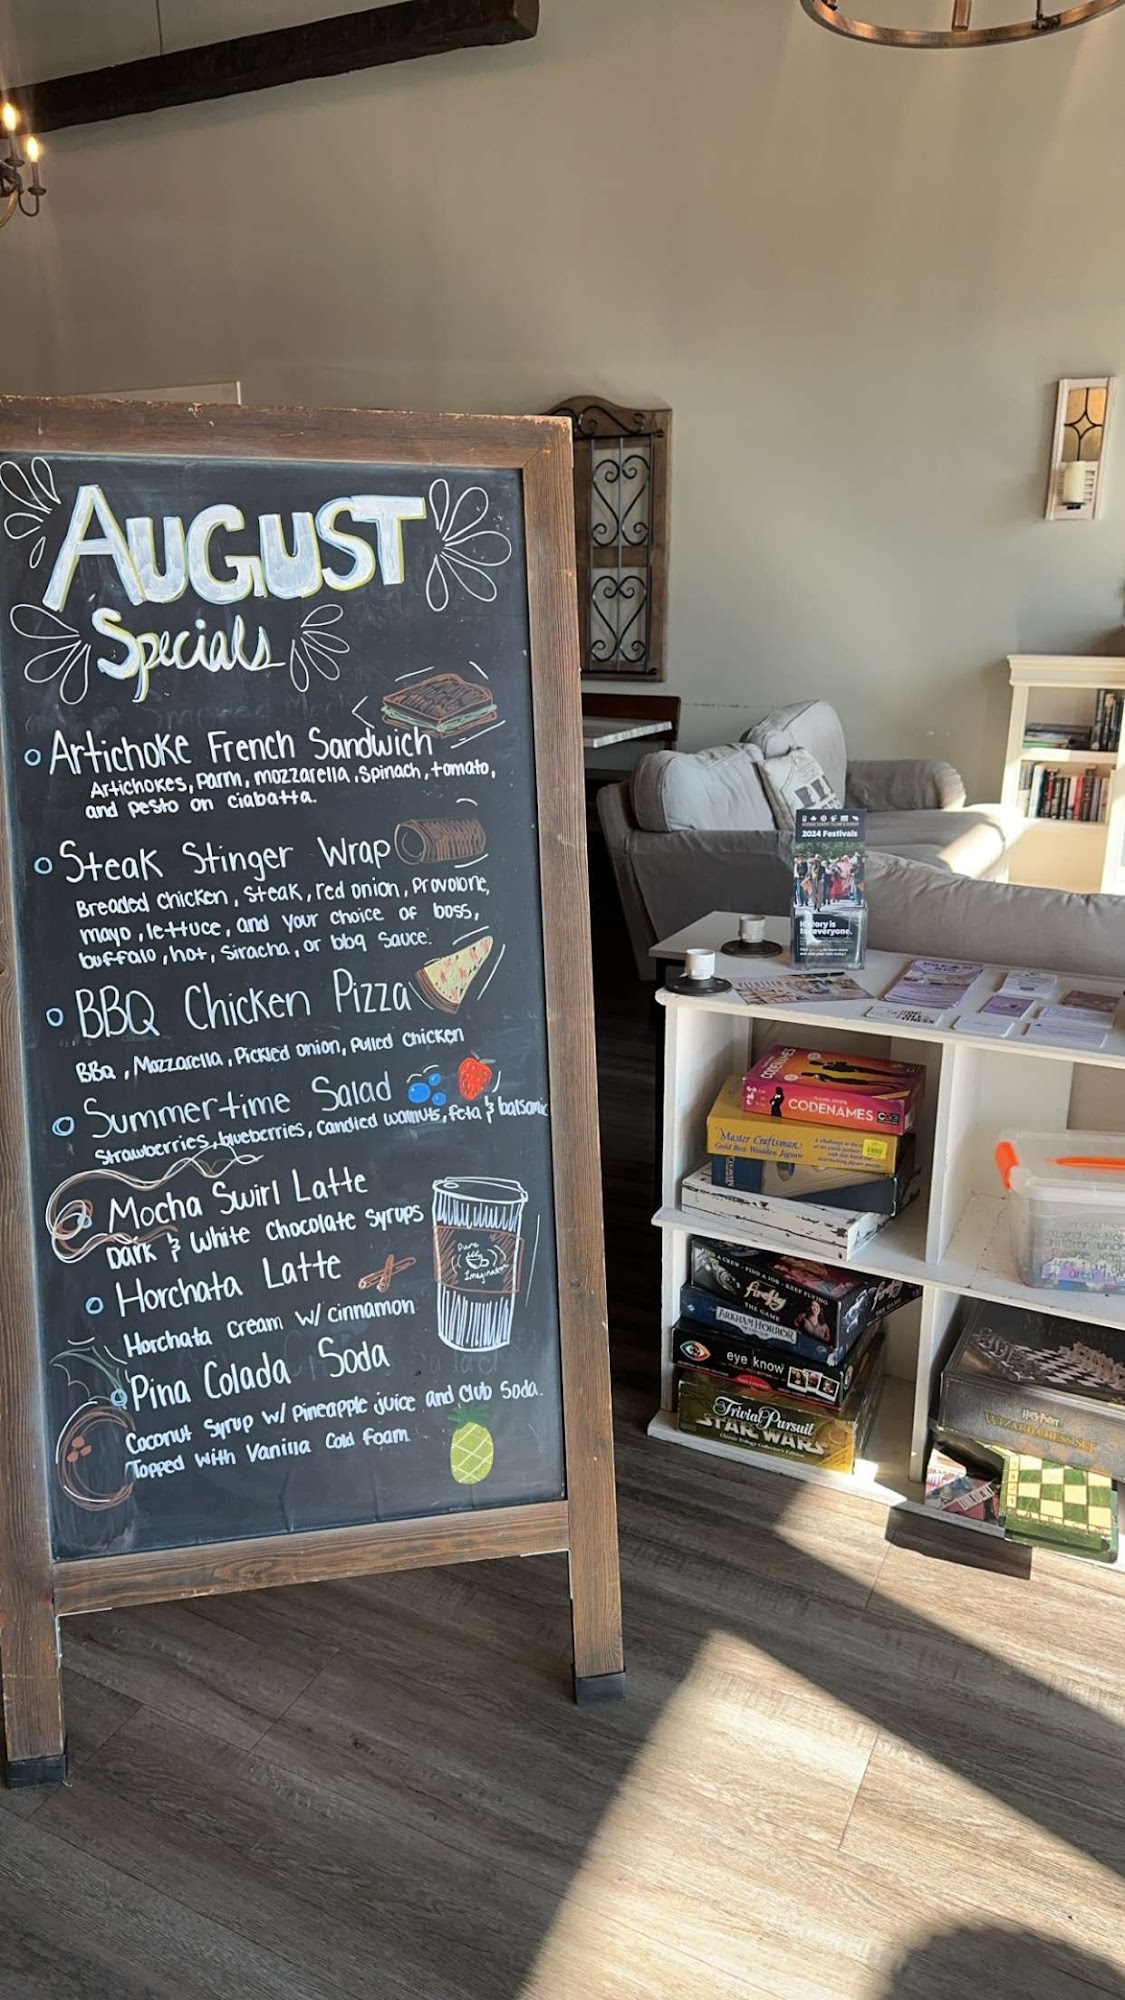 AUGUST
Specials
Artichoke French Sandwich
Artichokes, Parm, mozzarella, spinach, tomato,
and pesto on ciabatta.
Steak Stinger Wrap
Breaded chicken, steak, red onion, provolone,
mayo, lettuce, and your choice of boss,
buffalo, hot, siracha, or bbq sauce.
BBQ Chicken Pizza
BBQ, Mozzarella, Pickled onion, Pulled chicken
Summertime Salad
Strawberries, blueberries, candied walnuts, feta & balsamic
Mocha Swirl Latte
Dark & White Chocolate Syrups
Horchata Latte
Horchata Cream w/ cinnamon
Pina Colada Soda
Coconut Syrup w/ Pineapple juice and Club Soda.
Topped with Vanilla Cold Foam
Pure
Imagination
2024 Festivals
History is
for everyone.
CODENAMES
CODENAMES
Master Craftsman
Gold Box Wooden Jigsaw
A CREW · FIND A JOB · KEEP FLYING
firefly
THE GAME
firefly
ARKHAM HORROR
THE CARD GAME
eye know
Trivial Pursuit
STAR WARS
Classic Trilogy Collector's Edition
Harry Potter
WIZARD CHESS SET